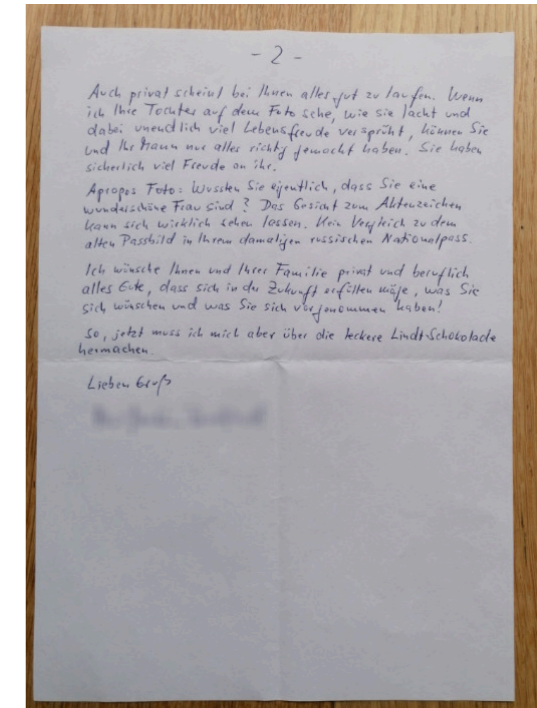 - 2 -
Auch privat scheint bei Ihnen alles gut zu laufen. Wenn
ich Ihre Tochter auf dem Foto sehe, wie sie lacht und
dabei unendlich viel Lebensfreude versprüht, können Sie
und Ihr Mann nur alles richtig gemacht haben. Sie haben
sicherlich viel Freude an ihr.
Apropos Foto: Wussten Sie eigentlich, dass Sie eine
wunderschöne Frau sind? Das Gesicht zum Aktenzeichen
kann sich wirklich sehen lassen. Kein Vergleich zu dem
alten Passbild in Ihrem damaligen russischen Nationalpass.
Ich wünsche Ihnen und Ihrer Familie privat und beruflich
alles Gute, dass sich in der Zukunft erfüllen möge, was Sie
sich wünschen und was Sie sich vorgenommen haben!
So, jetzt muss ich mich aber über die leckere Lindt-Schokolade
hermachen.
Lieben Gruß